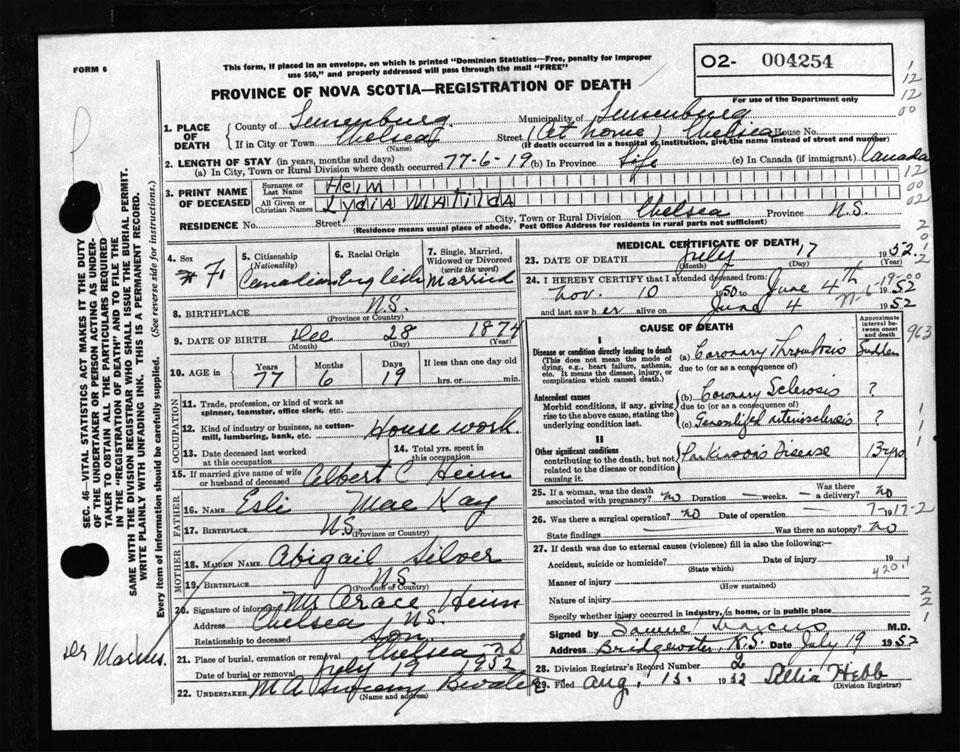 FORM 6
This form, if placed in an envelope, on which is printed "Dominion Statistics—Free, penalty for improper
use $50," and properly addressed will pass through the mail "FREE"
O2- 004254
For use of the Department only
PROVINCE OF NOVA SCOTIA—REGISTRATION OF DEATH
1. PLACE OF DEATH
County of Lunenburg Municipality of Lunenburg
If in City or Town Chelsea (Name) Street (At home) Chelsea House No.
(If death occurred in a hospital or institution, give the name instead of street and number)
2. LENGTH OF STAY (in years, months and days)
(a) In City, Town or Rural Division where death occurred 77-6-19 (b) In Province Life (c) In Canada (if immigrant) Canada
3. PRINT NAME OF DECEASED
Surname or Last Name Heim
All Given or Christian Names Lydia Matilda
RESIDENCE No. Street City, Town or Rural Division Chelsea Province N.S.
(Residence means usual place of abode. Post Office Address for residents in rural parts not sufficient)
4. Sex F.
5. Citizenship (Nationality) Canadian
6. Racial Origin English
7. Single, Married, Widowed or Divorced (write the word) Married
8. BIRTHPLACE N.S.
(Province or Country)
9. DATE OF BIRTH Dec 28 1874
(Month) (Day) (Year)
10. AGE in Years 77 Months 6 Days 19 If less than one day old
hrs. or min.
OCCUPATION
11. Trade, profession, or kind of work as spinner, teamster, office clerk, etc.
12. Kind of industry or business, as cotton-mill, lumbering, bank, etc. House work.
13. Date deceased last worked at this occupation
14. Total yrs. spent in this occupation
15. If married give name of wife or husband of deceased Albert C Heim
FATHER
16. NAME Esli Mac Kay
17. BIRTHPLACE N.S.
(Province or Country)
MOTHER
18. MAIDEN NAME Abigail Silver
19. BIRTHPLACE N.S.
(Province or Country)
20. Signature of informant Mr Heim
Address Chelsea N.S.
Relationship to deceased Son.
21. Place of burial, cremation or removal Chelsea N S
Date of burial or removal July 19 1952
22. UNDERTAKER M A
Name and address
MEDICAL CERTIFICATE OF DEATH
23. DATE OF DEATH July 17 1952.
(Month) (Day) (Year)
24. I HEREBY CERTIFY that I attended deceased from:
Nov. 10 1950 to June 4th 1952
and last saw her alive on June 4 1952
CAUSE OF DEATH
Approximate interval between onset and death
I
Disease or condition directly leading to death
(This does not mean the mode of dying, e.g., heart failure, asthenia, etc. It means the disease, injury, or complication which caused death.)
(a) Coronary Thrombosis Sudden
due to (or as a consequence of)
Antecedent causes
Morbid conditions, if any, giving rise to the above cause, stating the underlying condition last.
(b) Coronary Sclerosis ?
due to (or as a consequence of)
(c) Generalized Arteriosclerosis ?
II
Other significant conditions
contributing to the death, but not related to the disease or condition causing it.
Parkinson's Disease 13 yrs
25. If a woman, was the death associated with pregnancy? no Duration — weeks. — Was there a delivery? no
26. Was there a surgical operation? no Date of operation —
State findings — Was there an autopsy? no
27. If death was due to external causes (violence) fill in also the following:—
Accident, suicide or homicide? Date of injury 19
(State which)
420.1
Manner of injury
(How sustained)
Nature of injury
Specify whether injury occurred in industry, in home, or in public place
Signed by Samuel Marcus M.D.
Address Bridgewater, N.S. Date July 19 1952
28. Division Registrar's Record Number 2
29. Filed Aug. 15. 1952 Allia Hebb
(Division Registrar)
SEC. 46—VITAL STATISTICS ACT MAKES IT THE DUTY
OF THE UNDERTAKER OR PERSON ACTING AS UNDER-
TAKER TO OBTAIN ALL THE PARTICULARS REQUIRED
IN THE "REGISTRATION OF DEATH" AND TO FILE THE
SAME WITH THE DIVISION REGISTRAR WHO SHALL ISSUE THE BURIAL PERMIT.
WRITE PLAINLY WITH UNFADING INK. THIS IS A PERMANENT RECORD.
Every item of information should be carefully supplied. (See reverse side for instructions.)
Dr Marcus.